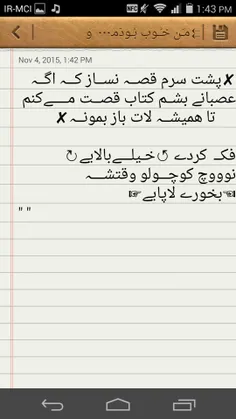 IR-MCI 1:43 PM
مـَن خـوب بـودمـ... و
Nov 4, 2015, 1:42 PM
✘پشت سرم قصـہ نسـاز کـہ اگـہ
عصبانے بشـم کتاب قصـت مـــےکنم
تا همیشـہ لات باز بمونـہ✘
فکـ کردے↺خـیلـےبالایے↻
نوووچ کوچـولو وقتشــہ
☜بخورے لاپایے☞
" "